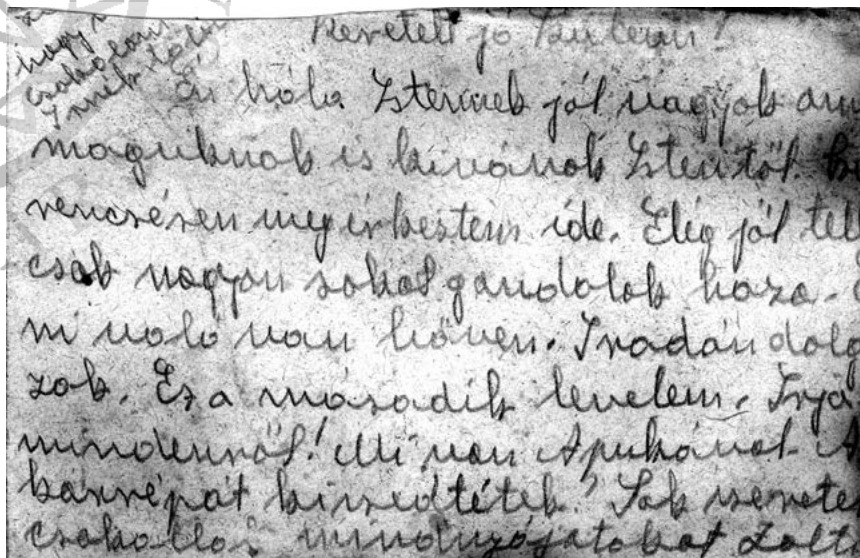 nagy
csokolom
Szeretett jó Szüleim!
Én hála Istennek jól vagyok
maguknak is kivánok Istentől.
rencsésen megérkestem ide. Elég jól
csak nagyon sokat gondolok haza.
ni való van bőven. Irodán dolg
zok. Ez a második levelem. Irja
mindenről! Mi van Apukával. A
kárrépát kiszedtétek? Sok szerete
csokollo mindnyájatokat Zolt